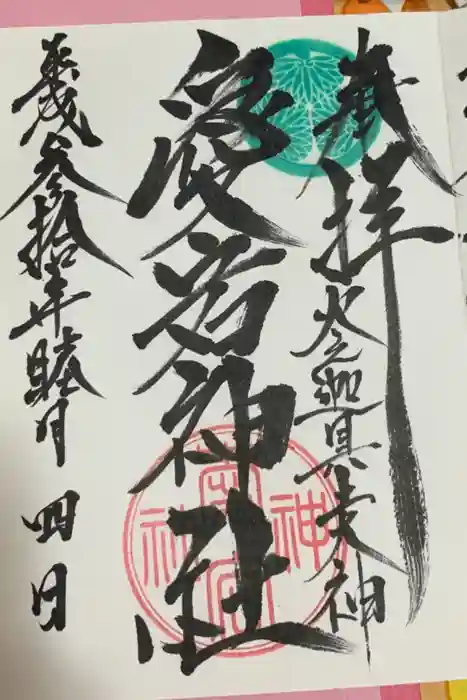 奉拝
火之迦具土神
愛宕神社
平成参拾年睦月四日